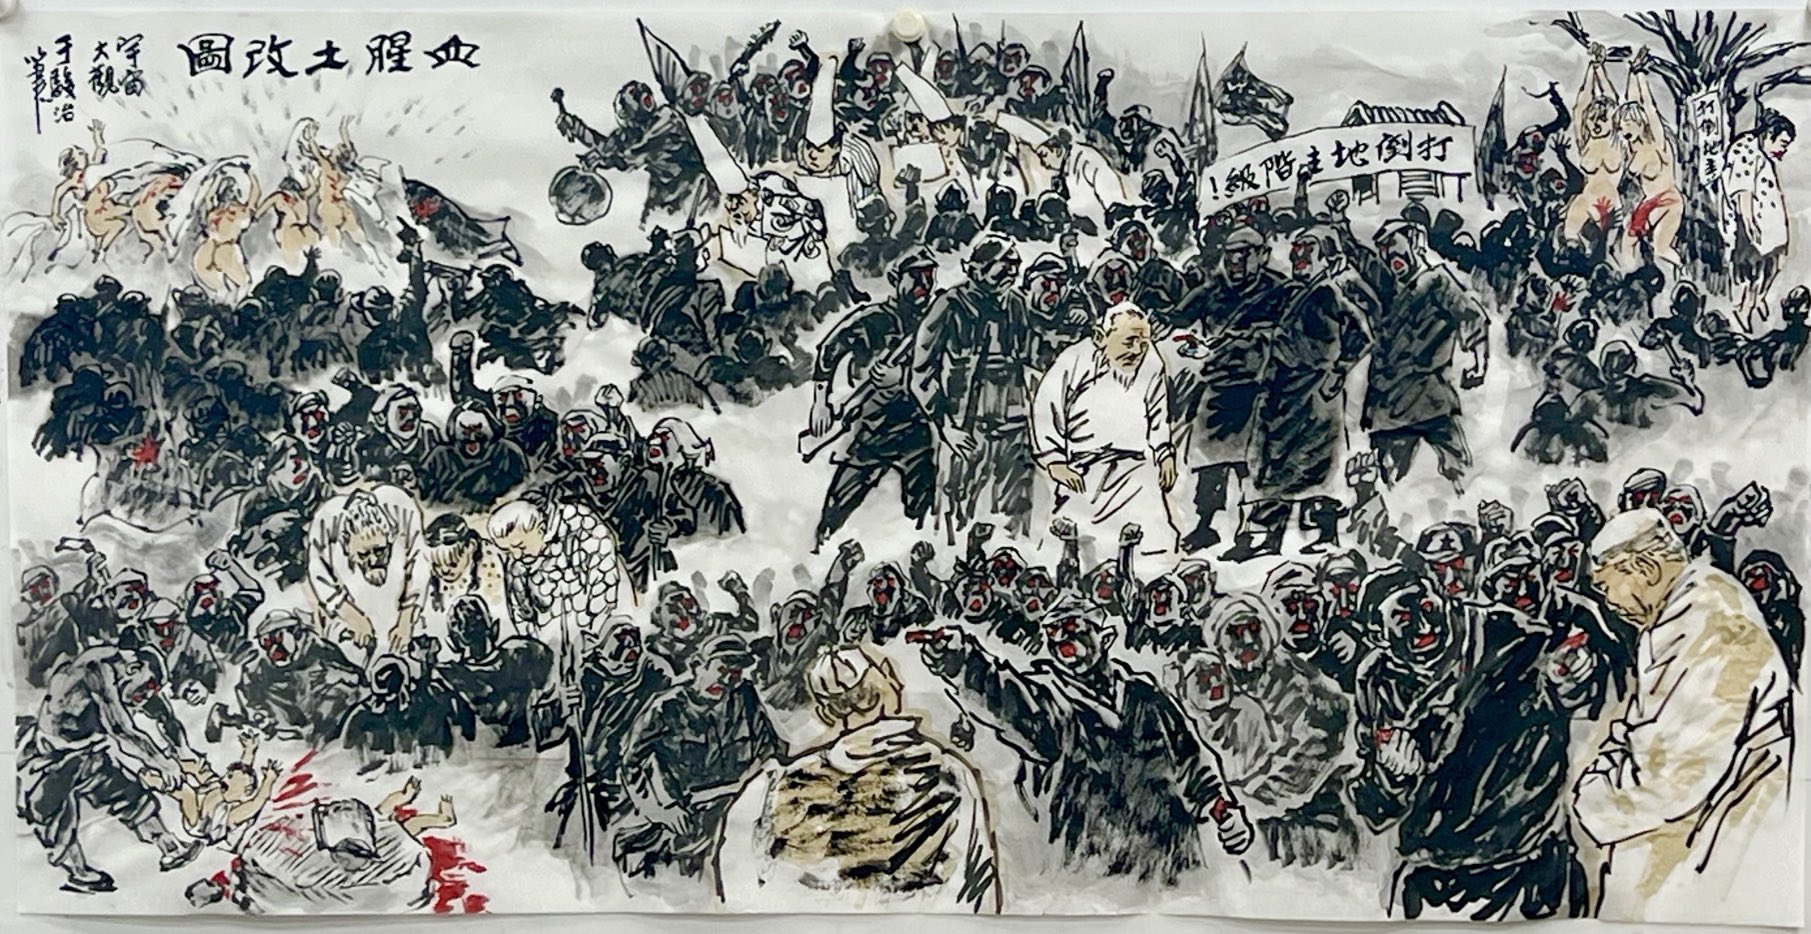 血腥土改圖
宇宙
大觀
于駿治
打倒地主階級！
打倒地主